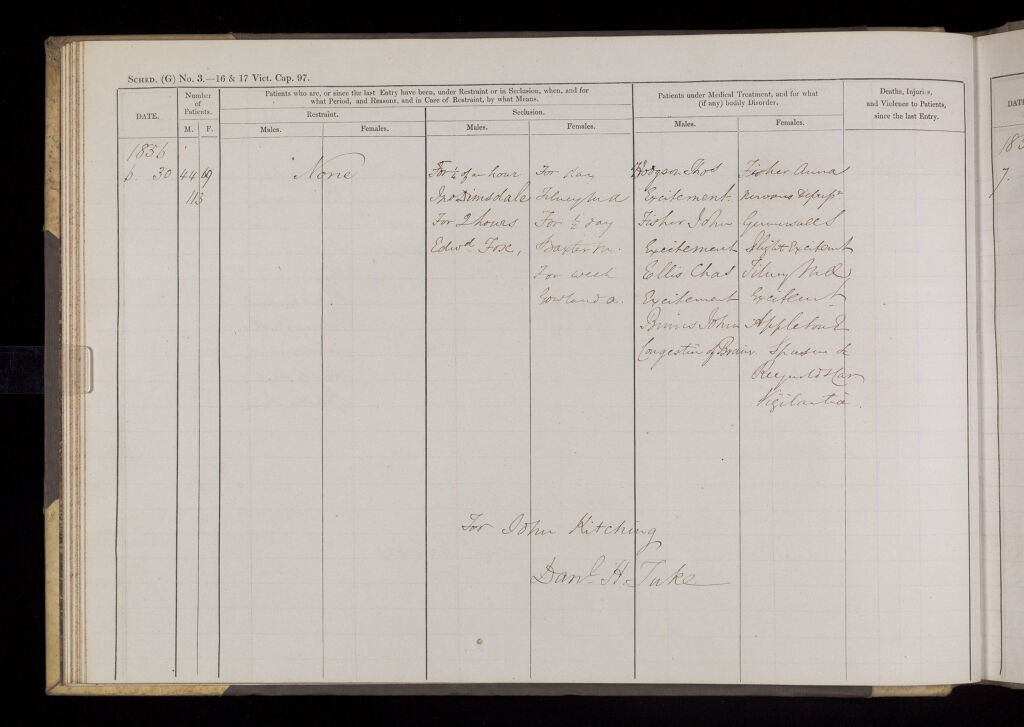 SCHED. (G) No. 3.—16 & 17 Vict. Cap. 97.
DATE.
Number
of
Patients.
M. F.
Patients who are, or since the last Entry have been, under Restraint or in Seclusion, when, and for
what Period, and Reasons, and in Case of Restraint, by what Means.
Restraint.
Males. Females.
Seclusion.
Males. Females.
Patients under Medical Treatment, and for what
(if any) bodily Disorder.
Males. Females.
Deaths, Injuries,
and Violence to Patients,
since the last Entry.
1856
6. 30 44 69
113
None
For ¼ of an hour
Jno Dimsdale
For 2 hours
Edwd Fox,
For day
Tilney M A
For ½ day
Baxter M.
For week
Rowland A.
Hodgson Thos
Excitement
Fisher John
Excitement
Ellis Chas
Excitement
Binns John
Congestion of Brain
Fisher Anna
Nervous
S
Slight Excitemt
Tilney M A
Excitemt
Appleton E
Spasm &c
Vigilantia.
For John Kitching
Danl. H. Tuke
DATE
185
7.